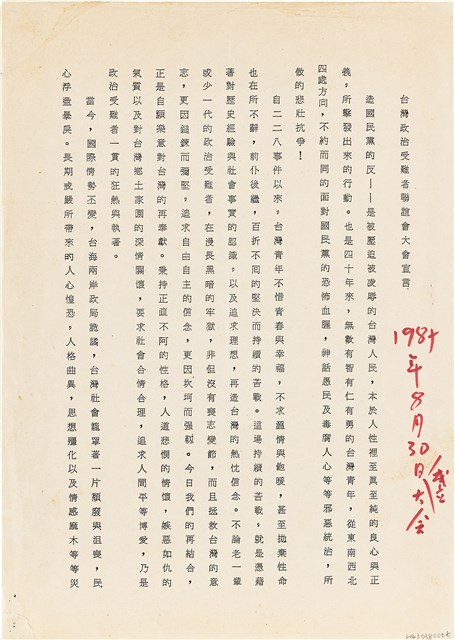 台灣政治受難者聯誼會大會宣言
造國民黨的反──是被壓迫被凌辱的台灣人民，本於人性裡至真至純的良心與正
義，所擊發出來的行動。也是四十年來，無數有智有仁有勇的台灣青年，從東南西北
四處方向，不約而同的面對國民黨的恐怖血腥，神話愚民及毒腐人心等等邪惡統治，所
做的悲壯抗爭！
自二二八事件以來，台灣青年不惜青春與幸福，不求溫情與飽暖，甚至拋棄性命
也在所不辭，前仆後繼，百折不回的堅決而持續的苦戰。這場持續的苦戰，就是憑藉
著對歷史經驗與社會事實的認識，以及追求理想，再造台灣的熱忱信念。不論老一輩
或少一代的政治受難者，在漫長黑暗的牢獄，非但沒有喪志變節，而且拯救台灣的意
志，更因鎚鍊而彌堅。追求自由自主的信念，更因坎坷而强韌。今日我們的再結合，
正是自願樂意對台灣的再奉獻。秉持正直不阿的性格，人道悲憫的情懷，嫉惡如仇的
氣質以及對台灣鄉土家園的深情關懷，要求社會合情合理，追求人間平等博愛，乃是
政治受難者一貫的狂熱與執著。
當今，國際情勢丕變，台海兩岸政局詭譎，台灣社會籠罩著一片頹廢與沮喪，民
心浮盪暴戾。長期戒嚴所帶來的人心惶恐，人格曲異，思想殭化以及情感麻木等等災
1987年8月30日大会
成立